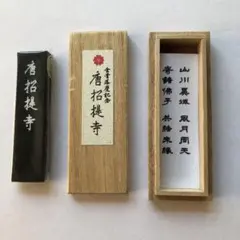 唐招提寺
金堂落慶記念
唐招提寺
山川異域 風月同天
寄諸佛子 共結来縁